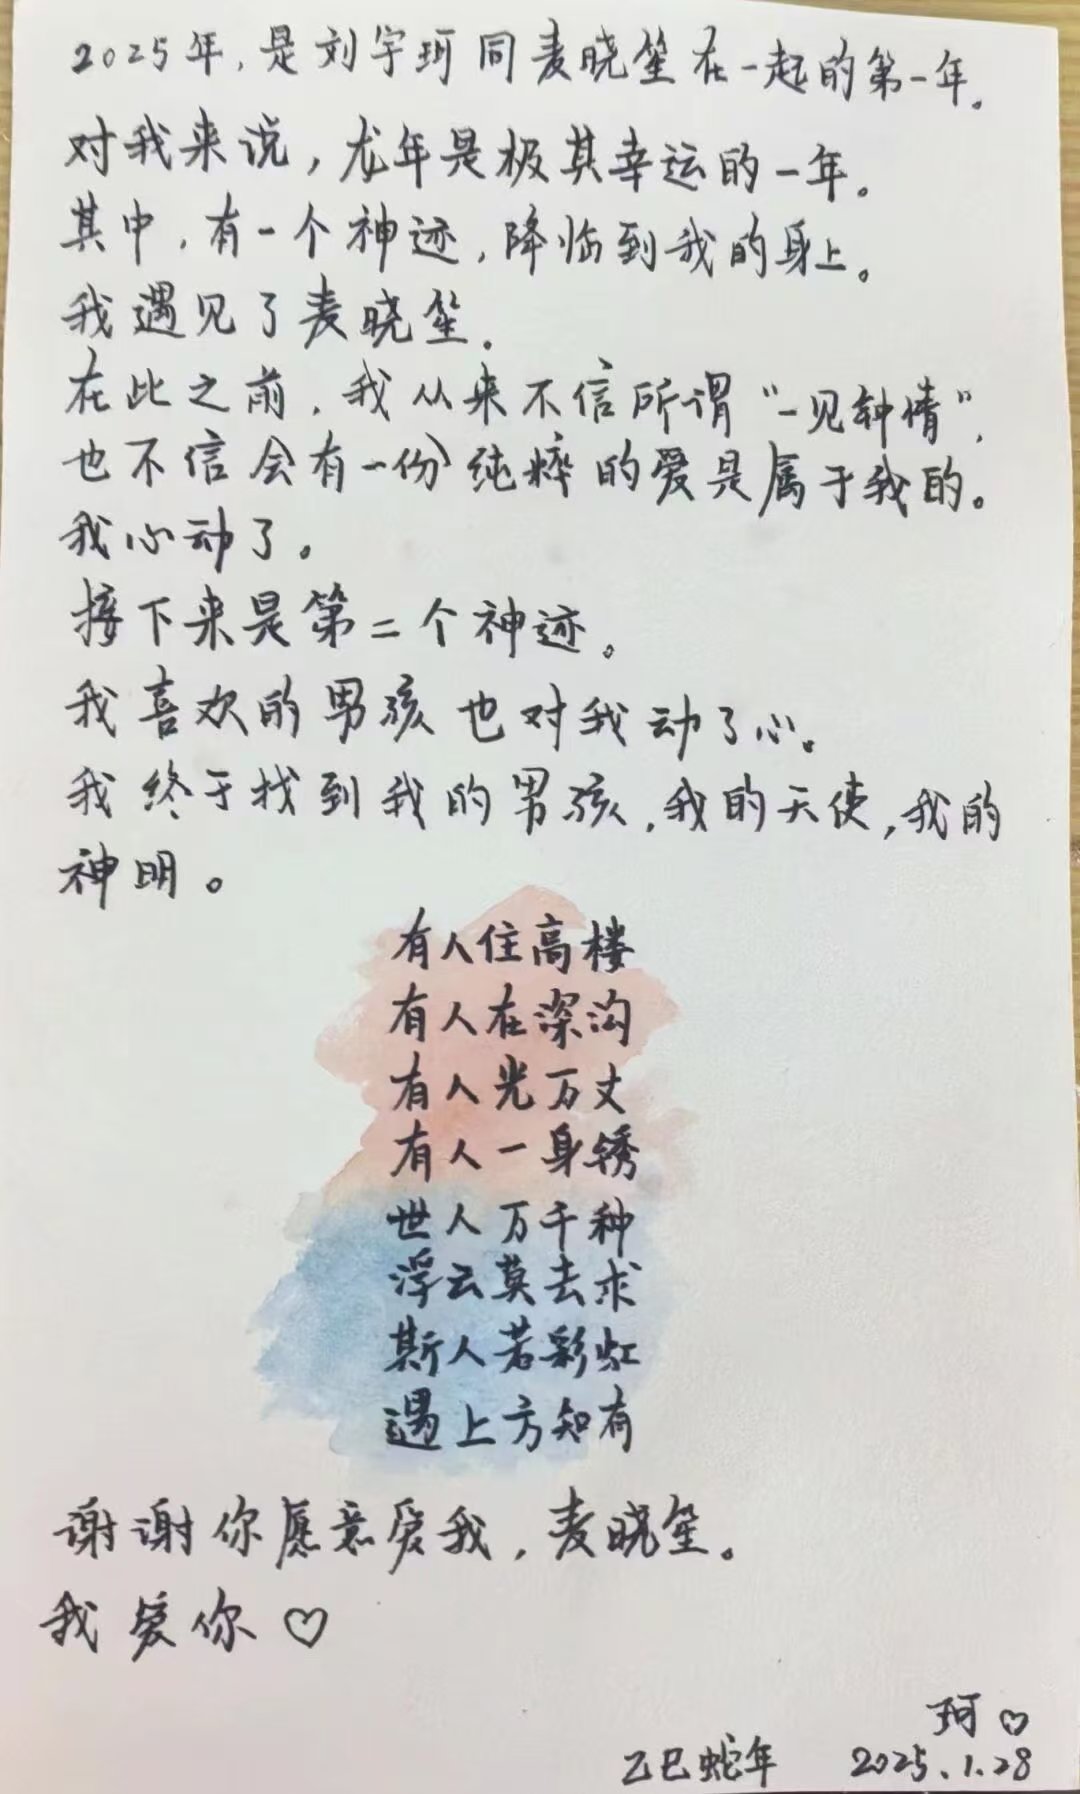 2025年，是刘宇珂同麦晓笙在一起的第一年。
对我来说，龙年是极其幸运的一年。
其中，有一个神迹，降临到我的身上。
我遇见了麦晓笙．
在此之前，我从来不信所谓“一见钟情”，
也不信会有一份纯粹的爱是属于我的。
我心动了。
接下来是第二个神迹。
我喜欢的男孩也对我动了心。
我终于找到我的男孩，我的天使，我的
神明。
有人住高楼
有人在深沟
有人光万丈
有人一身锈
世人万千种
浮云莫去求
斯人若彩虹
遇上方知有
谢谢你愿意爱我，麦晓笙。
我爱你♡
珂♡
乙巳蛇年 2025.1.28